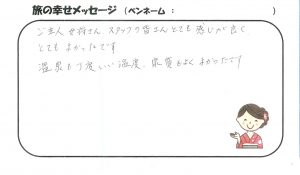 旅の幸せメッセージ（ペンネーム：　　　　　）
ご主人 女将さん スタッフの皆さん とても感じが良く
とても よかったです
温泉も丁度いい温度、泉質もよく よかったです